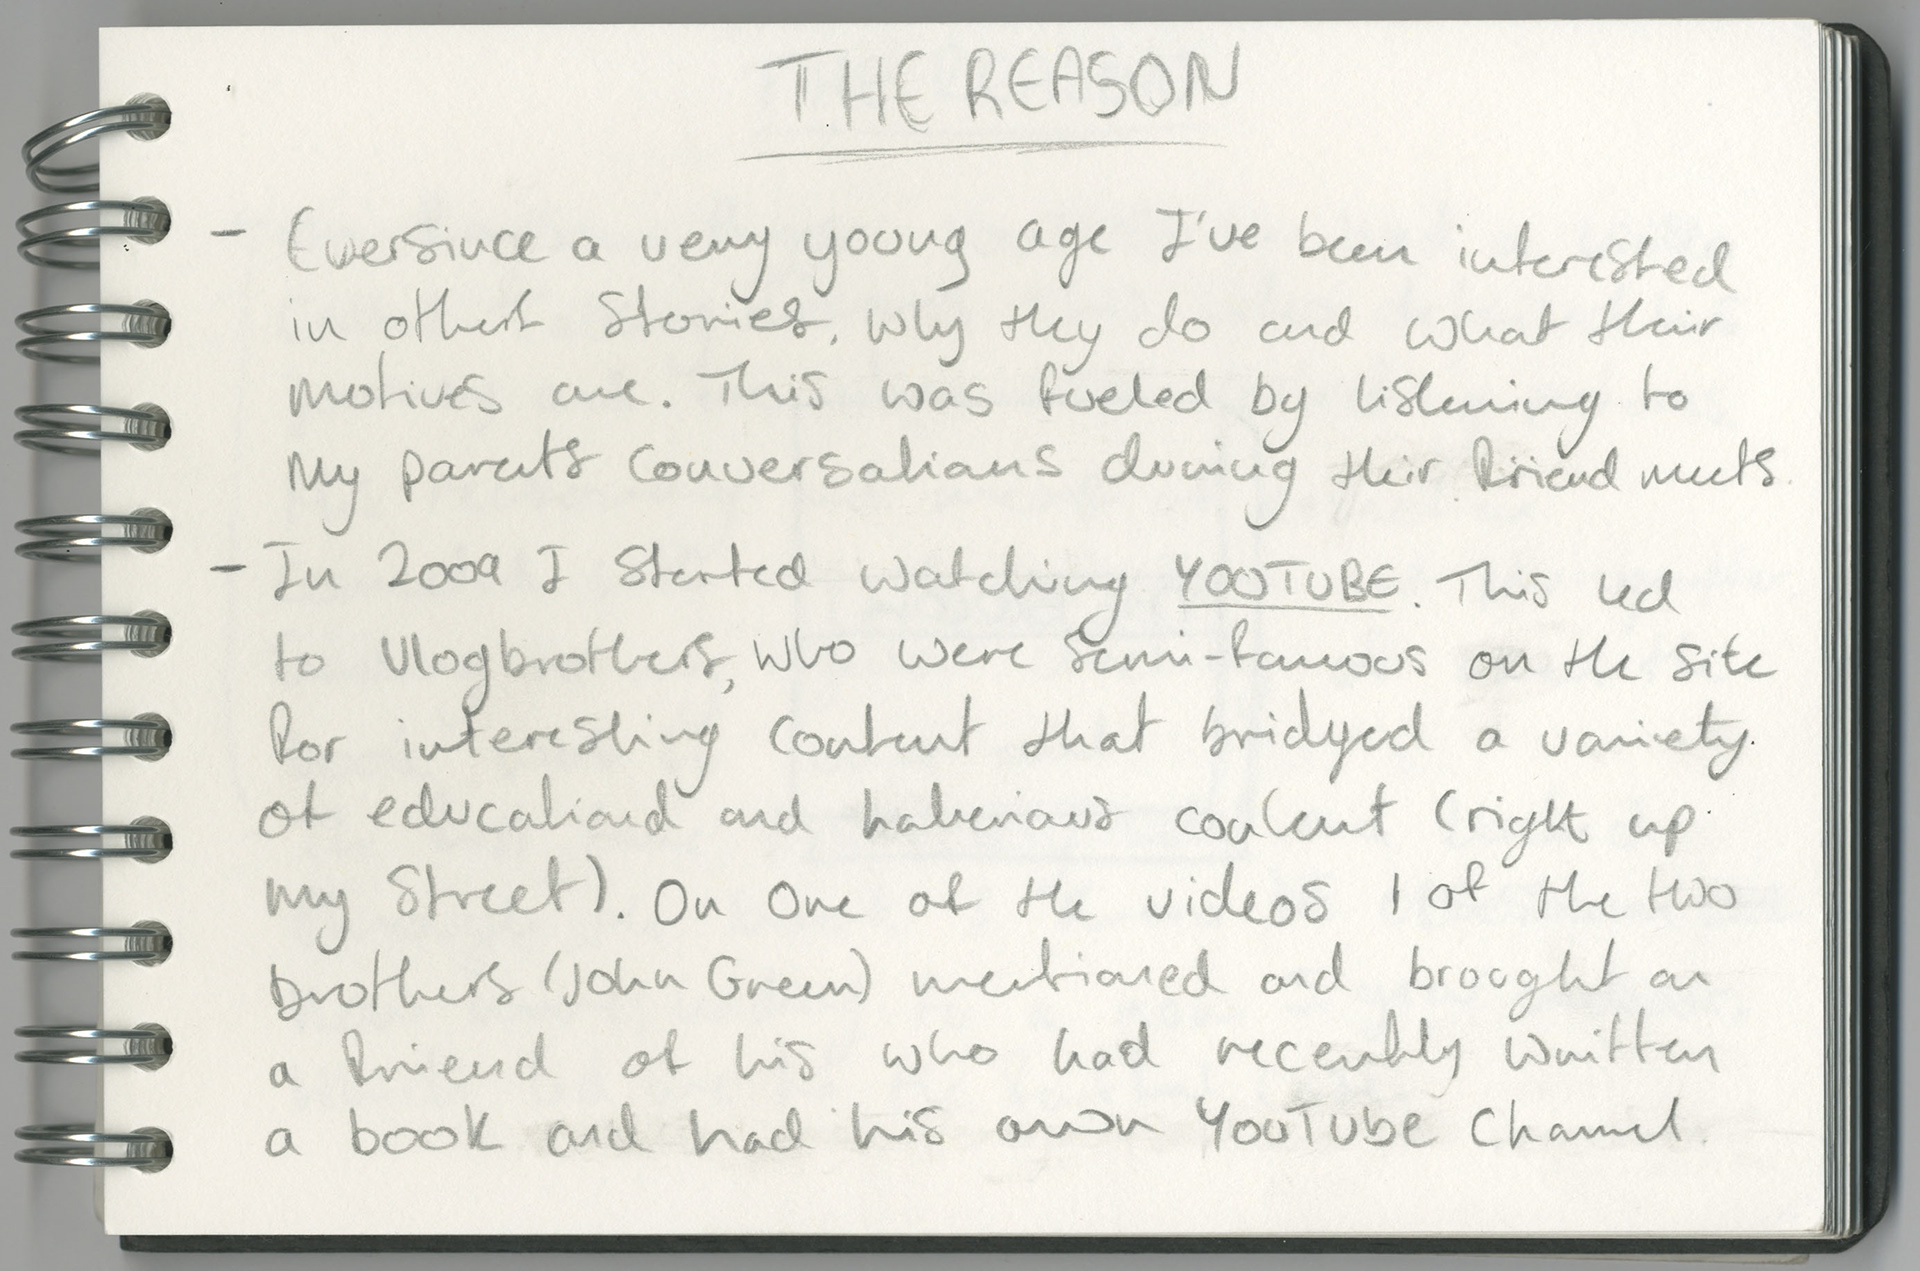 THE REASON
- Eversince a very young age I've been interested
in others stories, why they do and what their
motives are. This was fueled by listening to
my parents conversations during their friend meets.
- In 2009 I started watching YOUTUBE. This led
to Vlogbrothers, who were semi-famous on the site
for interesting content that bridged a variety
of educational and content (right up
my street). On one of the videos 1 of the two
brothers (John Green) mentioned and brought on
a friend of his who had recently written
a book and had his own YouTube channel.